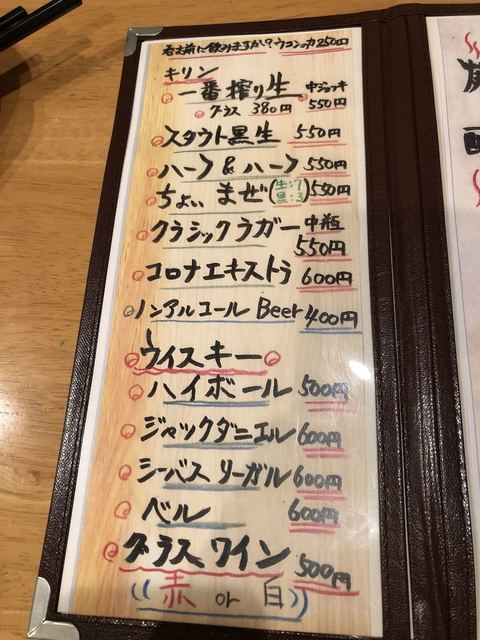 呑む前に飲みますか？ウコンの力250円
キリン
一番搾り生 中ジョッキ 550円
グラス 380円
スタウト黒生 550円
ハーフ&ハーフ 550円
ちょいまぜ(生:7 黒:3) 550円
クラシックラガー 中瓶 550円
コロナエキストラ 600円
ノンアルコール Beer 400円
ウイスキー
ハイボール 500円
ジャックダニエル 600円
シーバスリーガル 600円
ベル 600円
グラスワイン 500円
((赤 or 白))